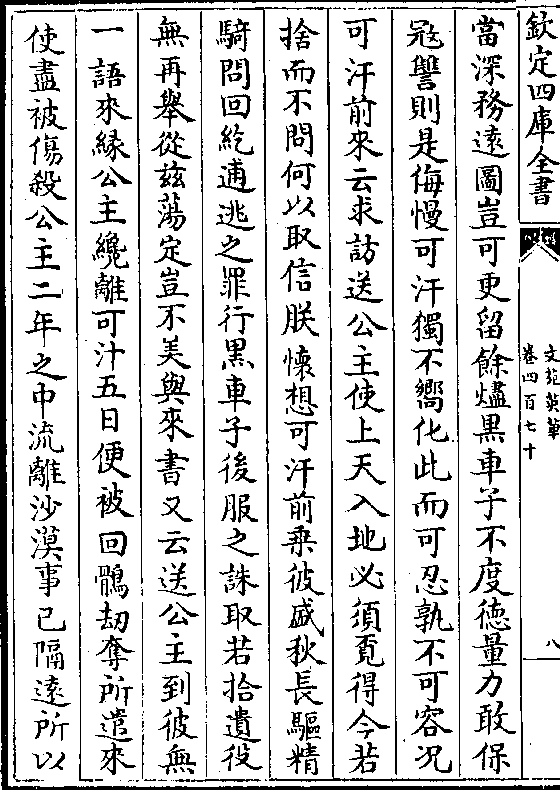 欽定四庫全書
文苑英華
卷四百七十
八
當深務遠圖豈可更留餘燼黒車子不度徳量力敢保
冦讐則是侮慢可汗獨不嚮化此而可忍孰不可容况
可汗前來云求訪送公主使上天入地必須覔得今若
捨而不問何以取信朕懷想可汗前乘彼盛秋長驅精
騎問回紇逋逃之罪行黒車子後服之誅取若拾遺役
無再舉從兹蕩定豈不美與來書又云送公主到彼無
一語來縁公主纔離可汁五日便被回鶻刼奪所遣來
使盡被傷殺公主二年之中流離沙漠事已隔逺所以